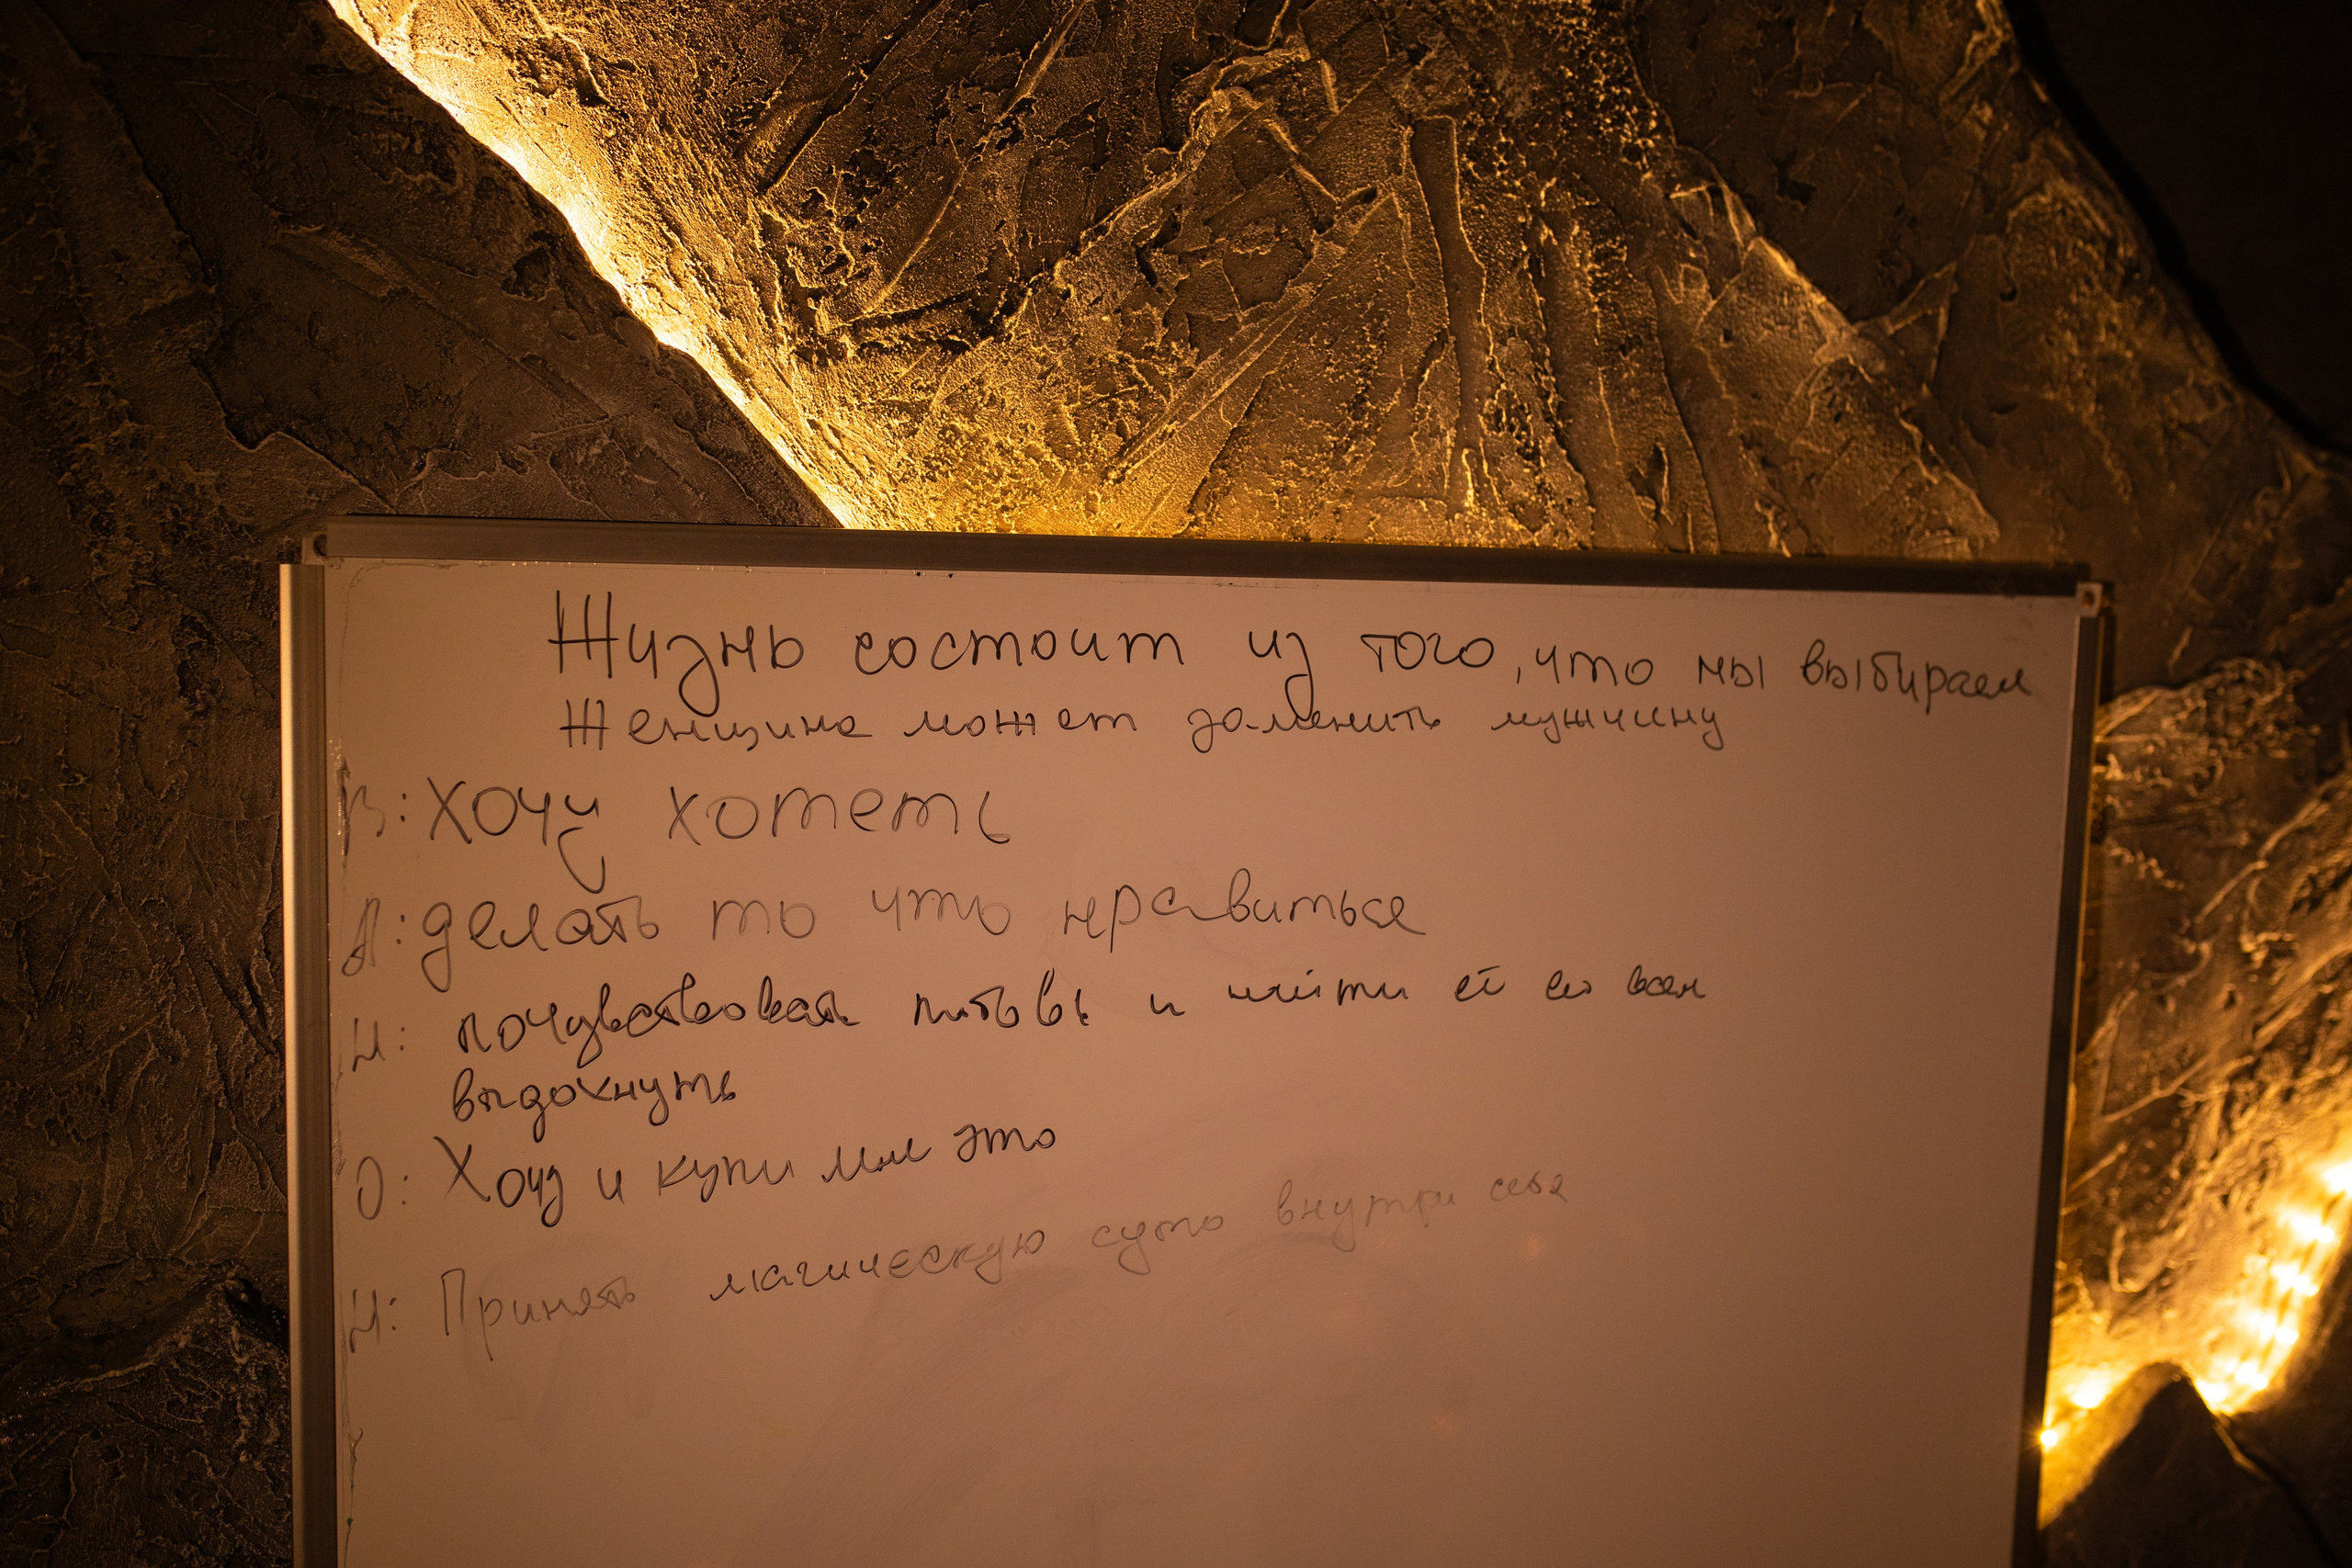 Жизнь состоит из того, что мы выбираем
Женщина может заменить мужчину
В: Хочу хотеть
А: делать то что нравиться
Н: почувствовать любовь и найти её во всем
выдохнуть
О: Хочу и купи мне это
Н: Принять магическую суть внутри себя